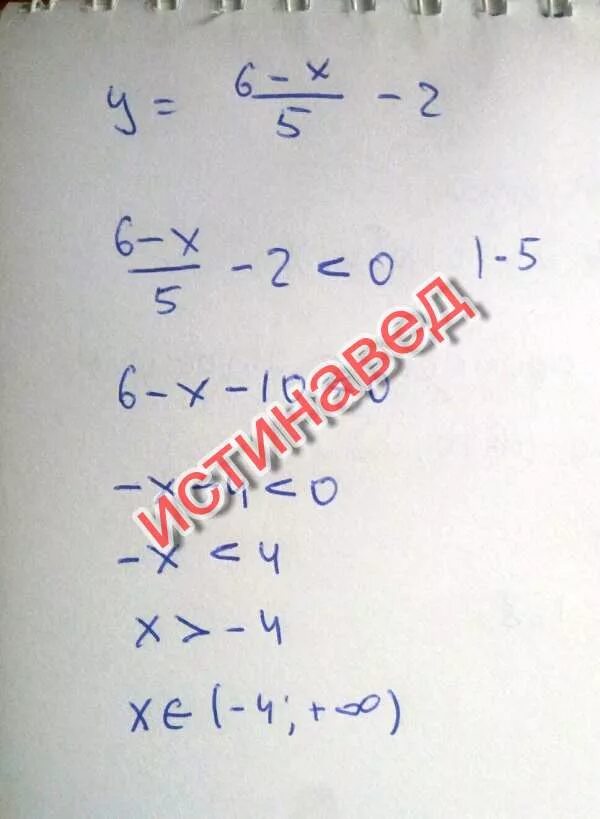 y = (6-x)/5 - 2
(6-x)/5 - 2 < 0 |-5
6-x-10 < 0
-x-4 < 0
-x < 4
x > -4
x ∈ (-4; +∞)
истинавед